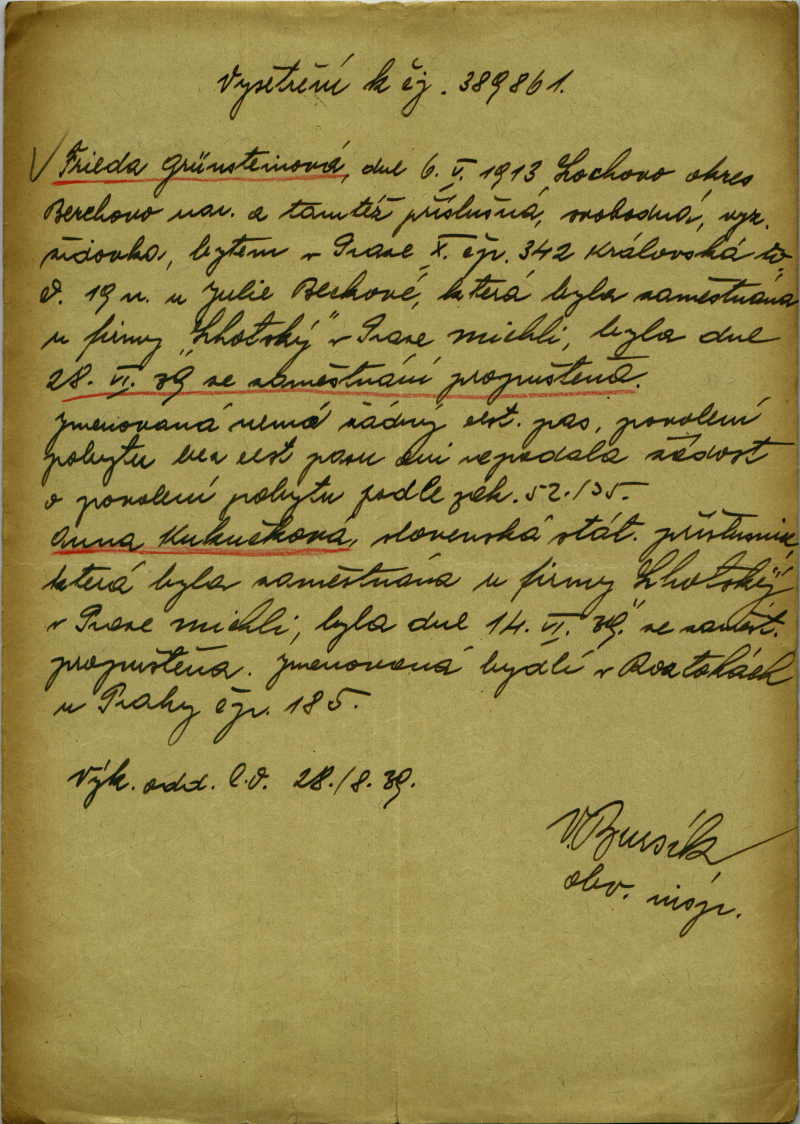 Vyšetření k čj. 389861.
Frieda Grünsteinová, dne 6. V. 1913 Lochovo okres
Berehovo nar. a tamtéž příslušná, svobodná, vyz.
židovka, bytem v Praze X. čp. 342 Královská tř.
č. 19 n. u Julie Beckové, která byla zaměstnána
u firmy "Lhotský" v Praze Michli, byla dne
28. VI. 39 ze zaměstnání propuštěna.
Jmenovaná nemá žádný cest. pas, povolení
pobytu bez cest pasu ani nepodala žádost
o povolení pobytu podle zák. 52./35.
Anna Kukučková, slovenská stát. příslušnice,
která byla zaměstnána u firmy "Lhotský"
v Praze Michli, byla dne 14. VI. 39. ze zaměst.
propuštěna. Jmenovaná bydlí v Roztokách
u Prahy čp. 185.
Výk. odd. 28./8. 39.
V. Bursík
obv. insp.